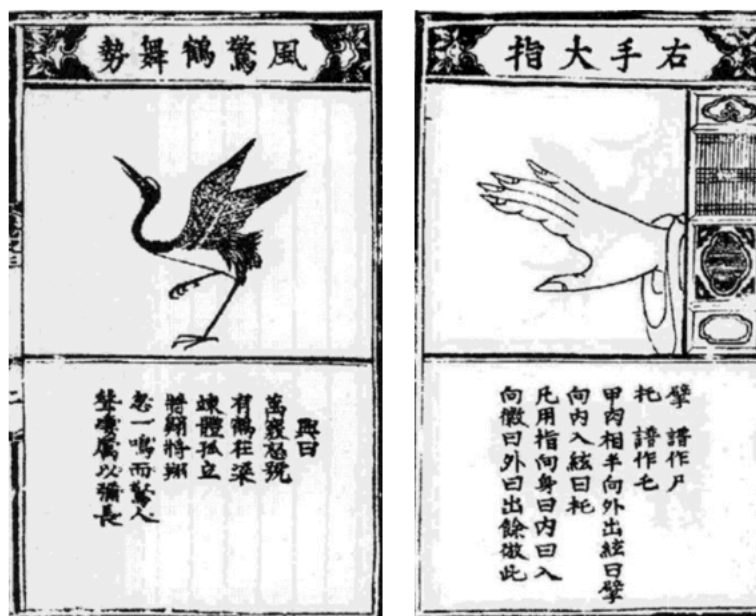 右手大指
擘 譜作尸
托 譜作乇
甲肉相半向外出絃曰擘
向內入絃曰托
凡用指向身曰內曰入
向徽曰外曰出餘倣此
風驚鶴舞勢
興曰
萬竅怒號
有鶴在梁
竦體孤立
將翱將翔
忽一鳴而驚人
聲淒厲以彌長